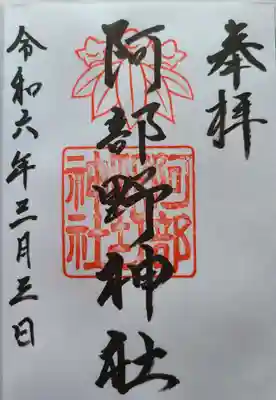 奉拝
阿部野神社
阿部
野
神社
令和六年三月三日